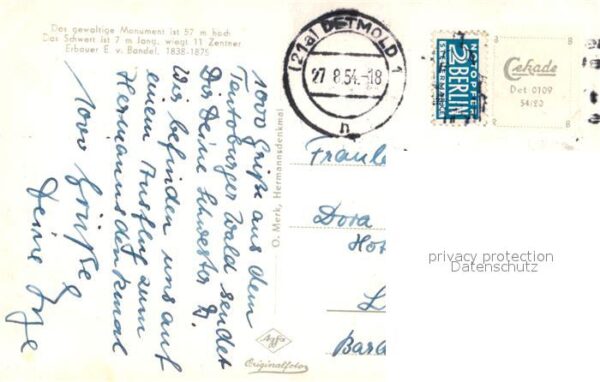 Das gewaltige Monument ist 57 m hoch
Das Schwert ist 7 m lang, wiegt 11 Zentner
Erbauer E. v. Bandel, 1838-1875
1000 Grüße aus dem
Teutoburger Wald sendet
Dir Deine Schwester
Wir befinden uns auf
einem Ausflug zum
Hermannsdenkmal
1000 Grüße
Deine Inge
O. Merk, Hermannsdenkmal
Agfa
Originalfoto
(21a) DETMOLD 1
27.8.54.-18
n
NOTOPFER
2 BERLIN
STEUERMARKE
Cekade
Det 0109
54/20
Fraule
Dora
Hot
L
Bara
privacy protection
Datenschutz